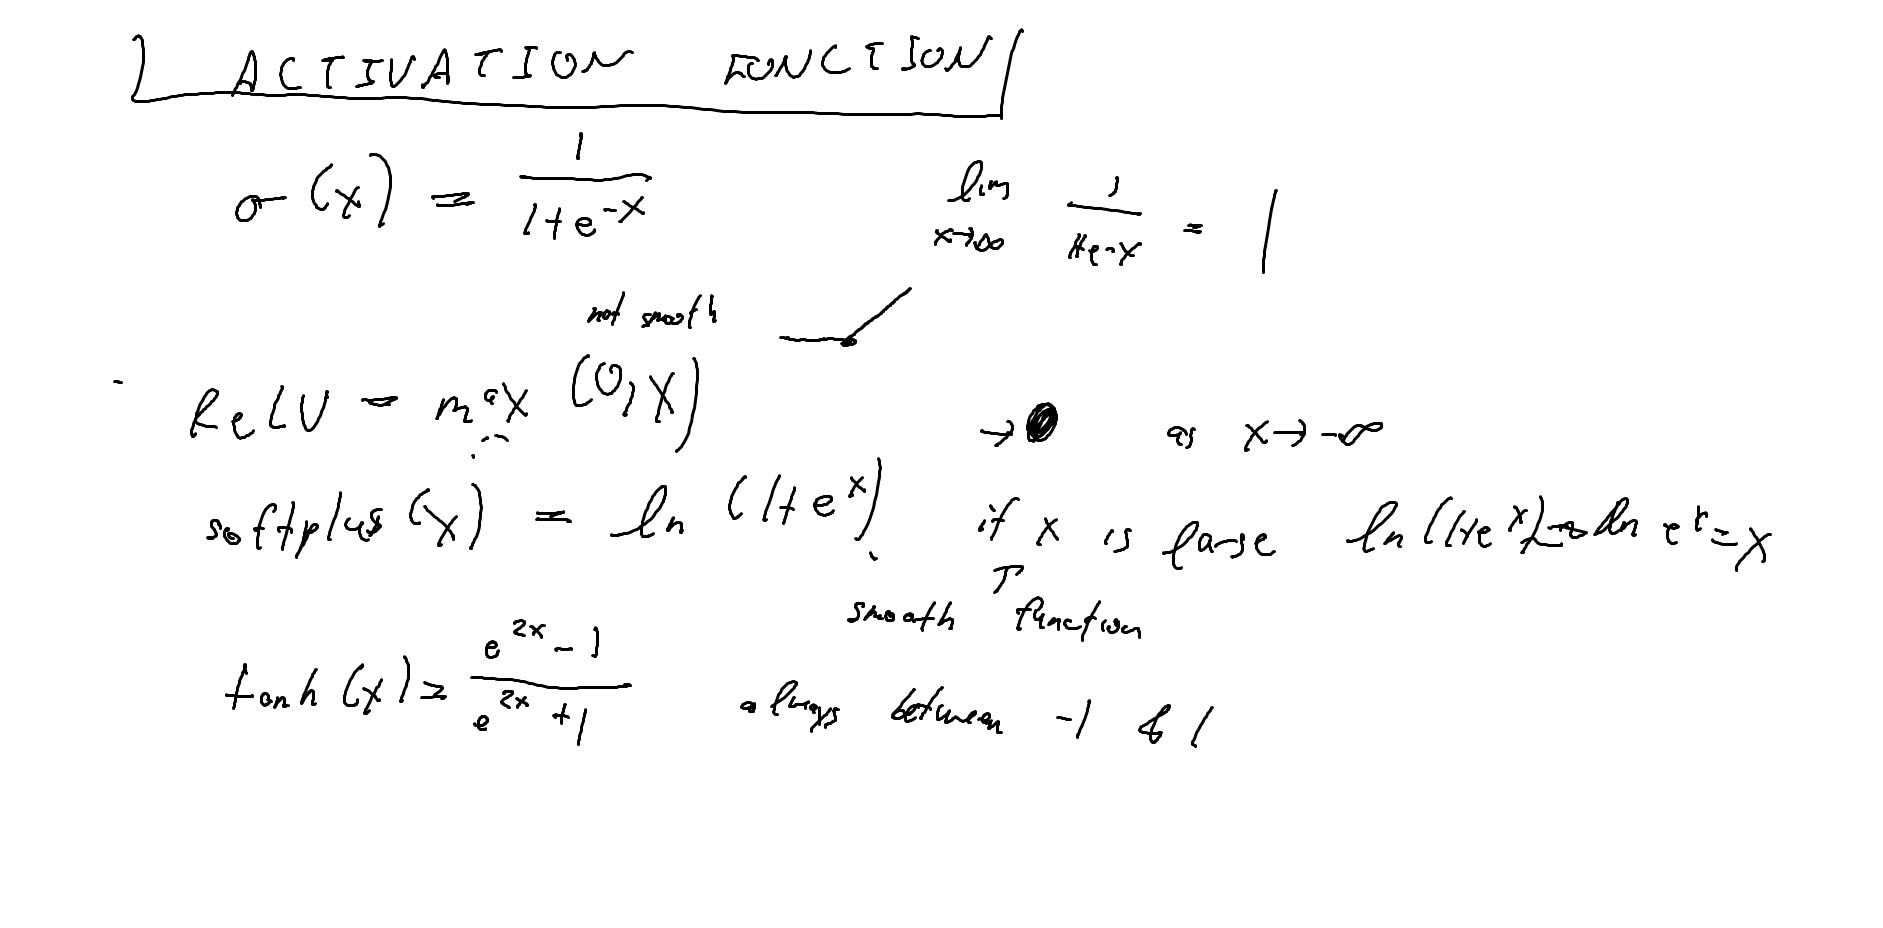 ACTIVATION FUNCTION
σ(x) = 1/(1+e^-x) lim x→∞ 1/(1+e^-x) = 1
not smooth
ReLU = max (0,x)
→ as x→-∞
softplus(x) = ln (1+e^x) if x is large ln(1+e^x)→ln e^x=x
smooth function
tanh(x) = (e^2x - 1)/(e^2x + 1) always between -1 & 1